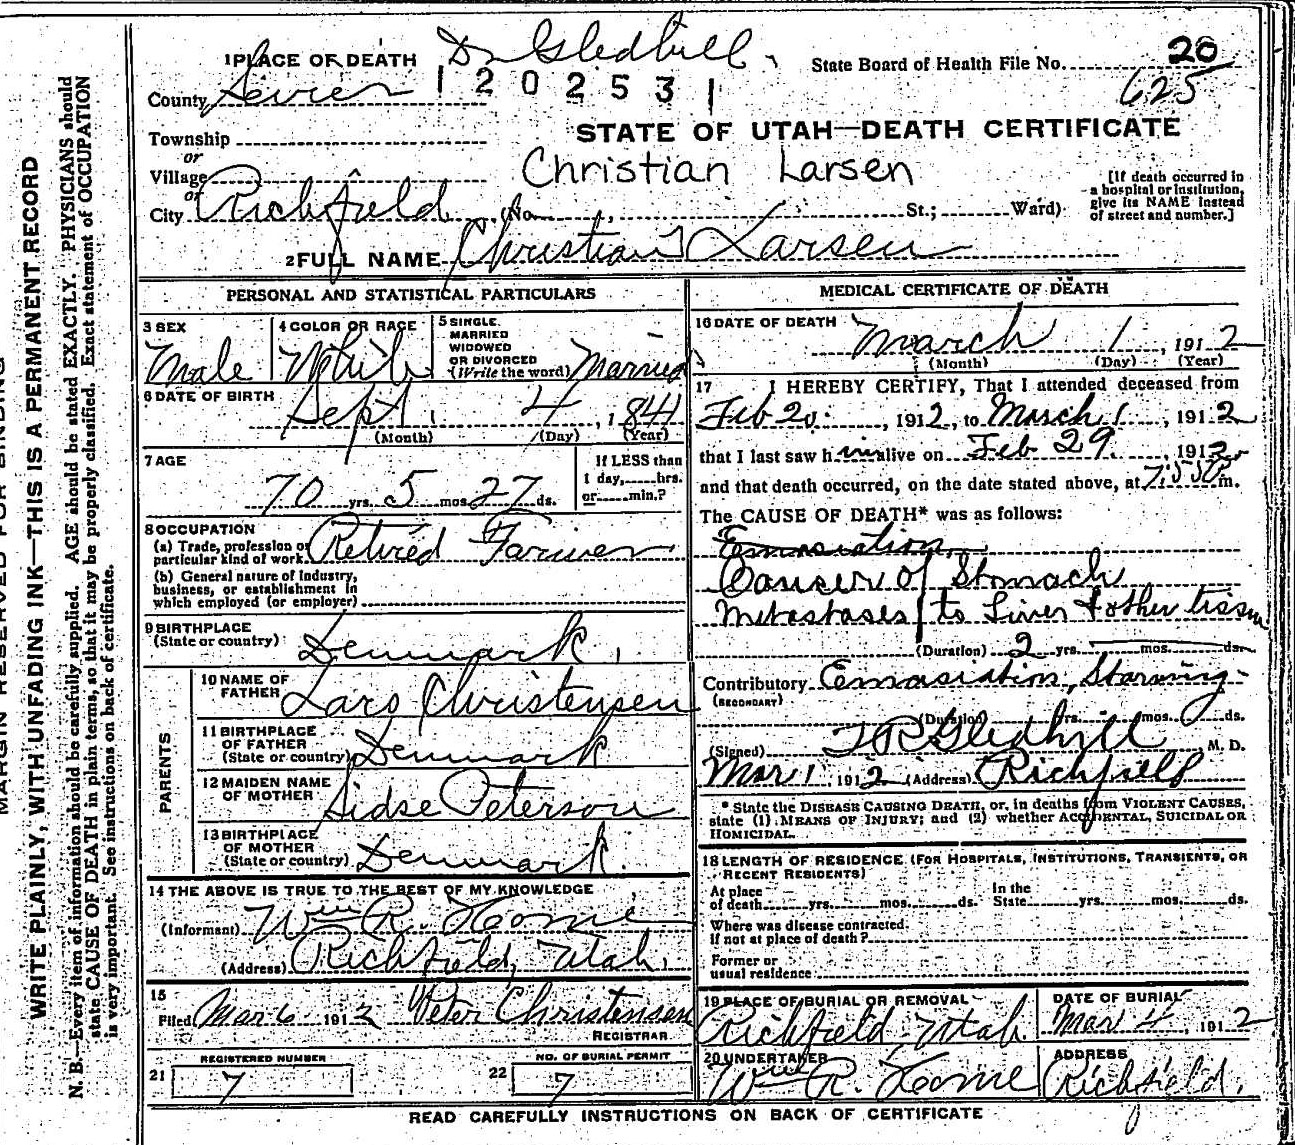 1 PLACE OF DEATH Dr Gledhill. State Board of Health File No. 20
625
County Sevier 1202531
Township
STATE OF UTAH—DEATH CERTIFICATE
or
Village
Christian Larsen
[If death occurred in
a hospital or institution,
give its NAME instead
of street and number.]
or
City Richfield (No. , St.; Ward)
2 FULL NAME Christian Larsen
PERSONAL AND STATISTICAL PARTICULARS
3 SEX
Male
4 COLOR OR RACE
White
5 SINGLE,
MARRIED
WIDOWED
OR DIVORCED
(Write the word) Married
6 DATE OF BIRTH
Sept 4, 1841
(Month) (Day) (Year)
7 AGE
70 yrs. 5 mos. 27 ds.
If LESS than
1 day, hrs.
or min.?
8 OCCUPATION
(a) Trade, profession or
particular kind of work Retired Farmer
(b) General nature of Industry,
business, or establishment in
which employed (or employer)
9 BIRTHPLACE
(State or country) Denmark,
PARENTS
10 NAME OF
FATHER Lars Christensen
11 BIRTHPLACE
OF FATHER
(State or country) Denmark
12 MAIDEN NAME
OF MOTHER Sidse Peterson
13 BIRTHPLACE
OF MOTHER
(State or country) Denmark.
14 THE ABOVE IS TRUE TO THE BEST OF MY KNOWLEDGE
(Informant) Wm R.
(Address) Richfield, Utah.
15
Filed Mar 6 1912 Peter Christensen
REGISTRAR
REGISTERED NUMBER
21 7
NO. OF BURIAL PERMIT
22 7
MEDICAL CERTIFICATE OF DEATH
16 DATE OF DEATH
March 1, 1912
(Month) (Day) (Year)
17 I HEREBY CERTIFY, That I attended deceased from
Feb 20, 1912, to March 1, 1912
that I last saw him alive on Feb 29, 1912
and that death occurred, on the date stated above, at m.
The CAUSE OF DEATH* was as follows:
Emasiation
Cancer of Stomach
Metastases to Liver & other tissue
(Duration) 2 yrs. mos. ds.
Contributory Emasiation, Starving
(SECONDARY)
(Duration) yrs. mos. ds.
(Signed) T R Gledhill, M. D.
Mar 1 1912 (Address) Richfield
* State the DISEASE CAUSING DEATH, or, in deaths from VIOLENT CAUSES,
state (1) MEANS OF INJURY; and (2) whether ACCIDENTAL, SUICIDAL OR
HOMICIDAL.
18 LENGTH OF RESIDENCE (FOR HOSPITALS, INSTITUTIONS, TRANSIENTS, OR
RECENT RESIDENTS)
At place
of death yrs. mos. ds.
In the
State yrs. mos. ds.
Where was disease contracted,
if not at place of death?
Former or
usual residence
19 PLACE OF BURIAL OR REMOVAL
Richfield, Utah
DATE OF BURIAL
Mar 4, 1912
20 UNDERTAKER
Wm R.
ADDRESS
Richfield.
READ CAREFULLY INSTRUCTIONS ON BACK OF CERTIFICATE
MARGIN RESERVED FOR BINDING
WRITE PLAINLY, WITH UNFADING INK—THIS IS A PERMANENT RECORD
N. B.—Every item of information should be carefully supplied. AGE should be stated EXACTLY. PHYSICIANS should
state CAUSE OF DEATH in plain terms, so that it may be properly classified. Exact statement of OCCUPATION
is very important. See instructions on back of certificate.